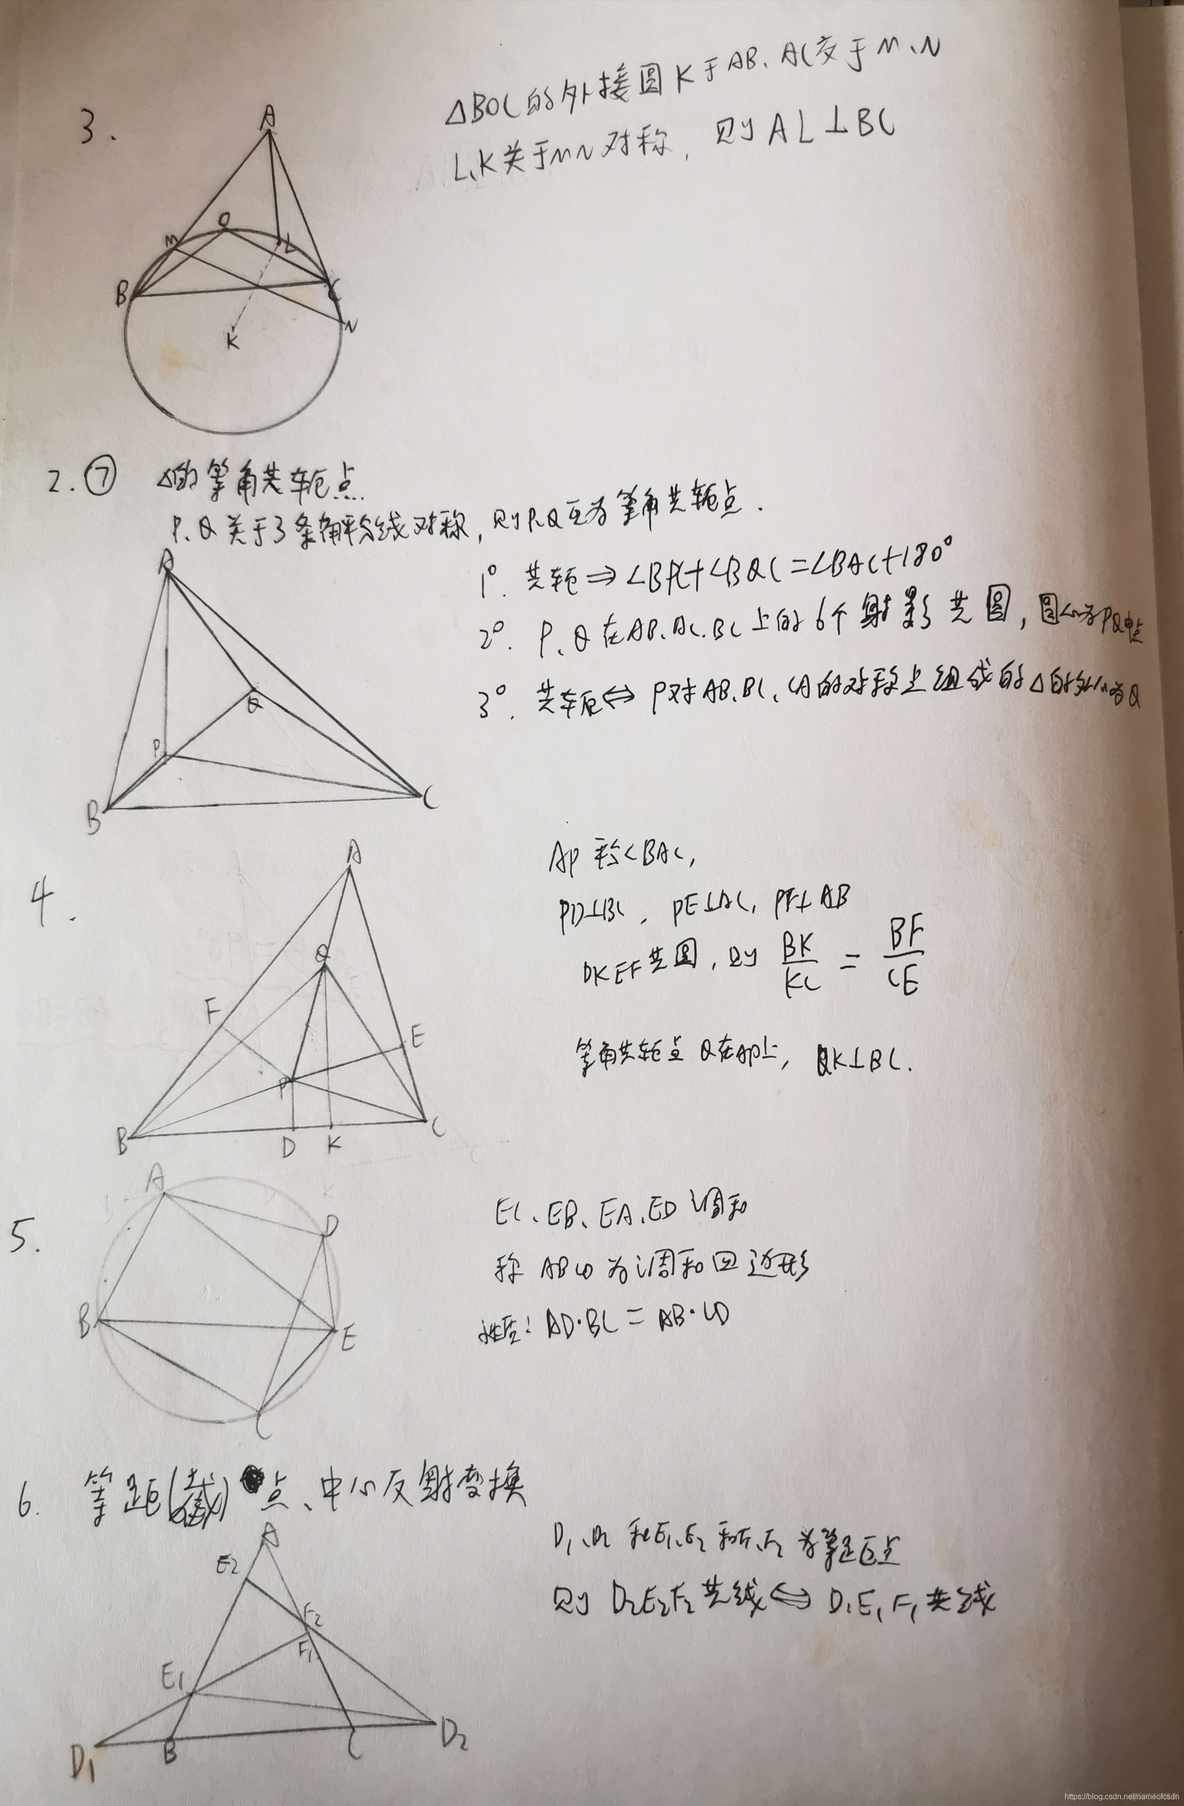 3.
△BOC的外接圆K于AB、AC交于M、N
L、K关于MN对称,则AL⊥BC
A
O
M
L
B
C
N
K
2.⑦ △的等角共轭点
P、Q关于3条角平分线对称,则P、Q互为等角共轭点.
1°. 共轭⇒∠BPC+∠BQC=∠BAC+180°
2°. P、Q在AB、AC、BC上的6个射影共圆,圆心为PQ中点
3°. 共轭⇔P对AB、BC、CA的对称点组成的△的外心为Q
A
Q
P
B
C
4.
AP平分∠BAC,
PD⊥BC,PE⊥AC,PF⊥AB
DKEF共圆,则 BK/KC = BF/CE
等角共轭点Q在AP上,QK⊥BC.
A
Q
F
E
P
B
C
D
K
5.
EC、EB、EA、ED调和
称ABCD为调和四边形
性质:AD·BC=AB·CD
A
D
B
E
C
6. 等距(截)点、中心反射变换
D₁、D₂和E₁、E₂和F₁、F₂为等距点
则D₂E₂F₂共线⇔D₁E₁F₁共线
A
E₂
F₂
F₁
E₁
D₁
B
C
D₂
https://blog.csdn.net/nameofcsdn